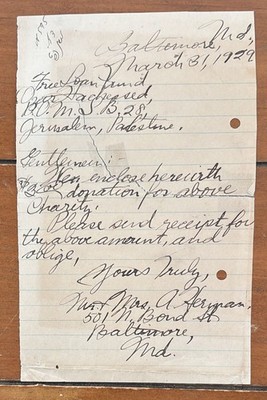 Baltimore, Md.,
March 31, 1929
Free Loan Fund
P.O.
Jerusalem, Palestine.
Gentlemen:-
enclose herewith
donation for above
Charity.
Please send receipt for
the above amount, and
oblige,
Yours Truly,
Mr & Mrs. A. Herman.
501 N. Bond St
Baltimore,
Md.